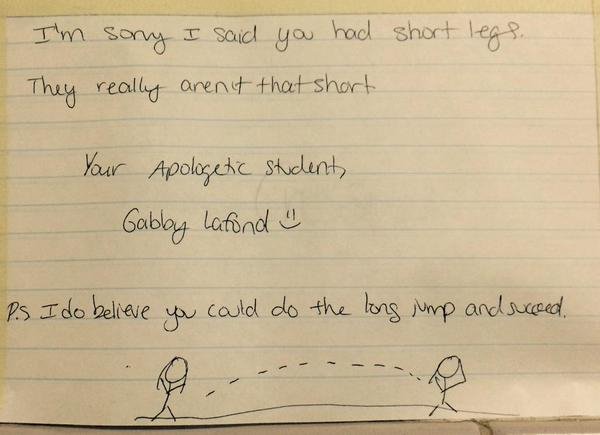 I'm sorry I said you had short legs.
They really aren't that short
Your Apologetic student,
Gabby Lafond
P.S I do believe you could do the long jump and succeed.